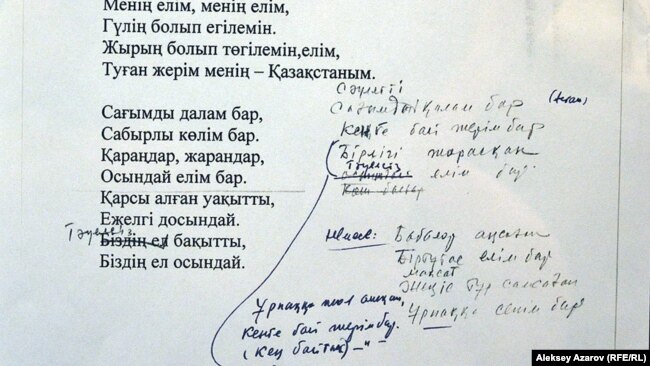 Менің елім, менің елім,
Гүлің болып егілемін.
Жырың болып төгілемін,елім,
Туған жерім менің – Қазақстаным.
Сағымды далам бар,
Сабырлы көлім бар.
Қараңдар, жарандар,
Осындай елім бар.
Қарсы алған уақытты,
Ежелгі досындай.
Тәуелсіз
Біздің ел бақытты,
Біздің ел осындай.
Сәулетті
Сағымды қалам бар
Кенге бай жерім бар
Бірлігі жарасқан
Тәуелсіз
елім бар
Бабалар аңсаған
Біртұтас елім бар
мақсат
Ұрпаққа сенім бар
Ұрпаққа жол ашқан,
Кенге бай жерім бар.
(Кең байтақ) –"–
Aleksey Azarov (RFE/RL)